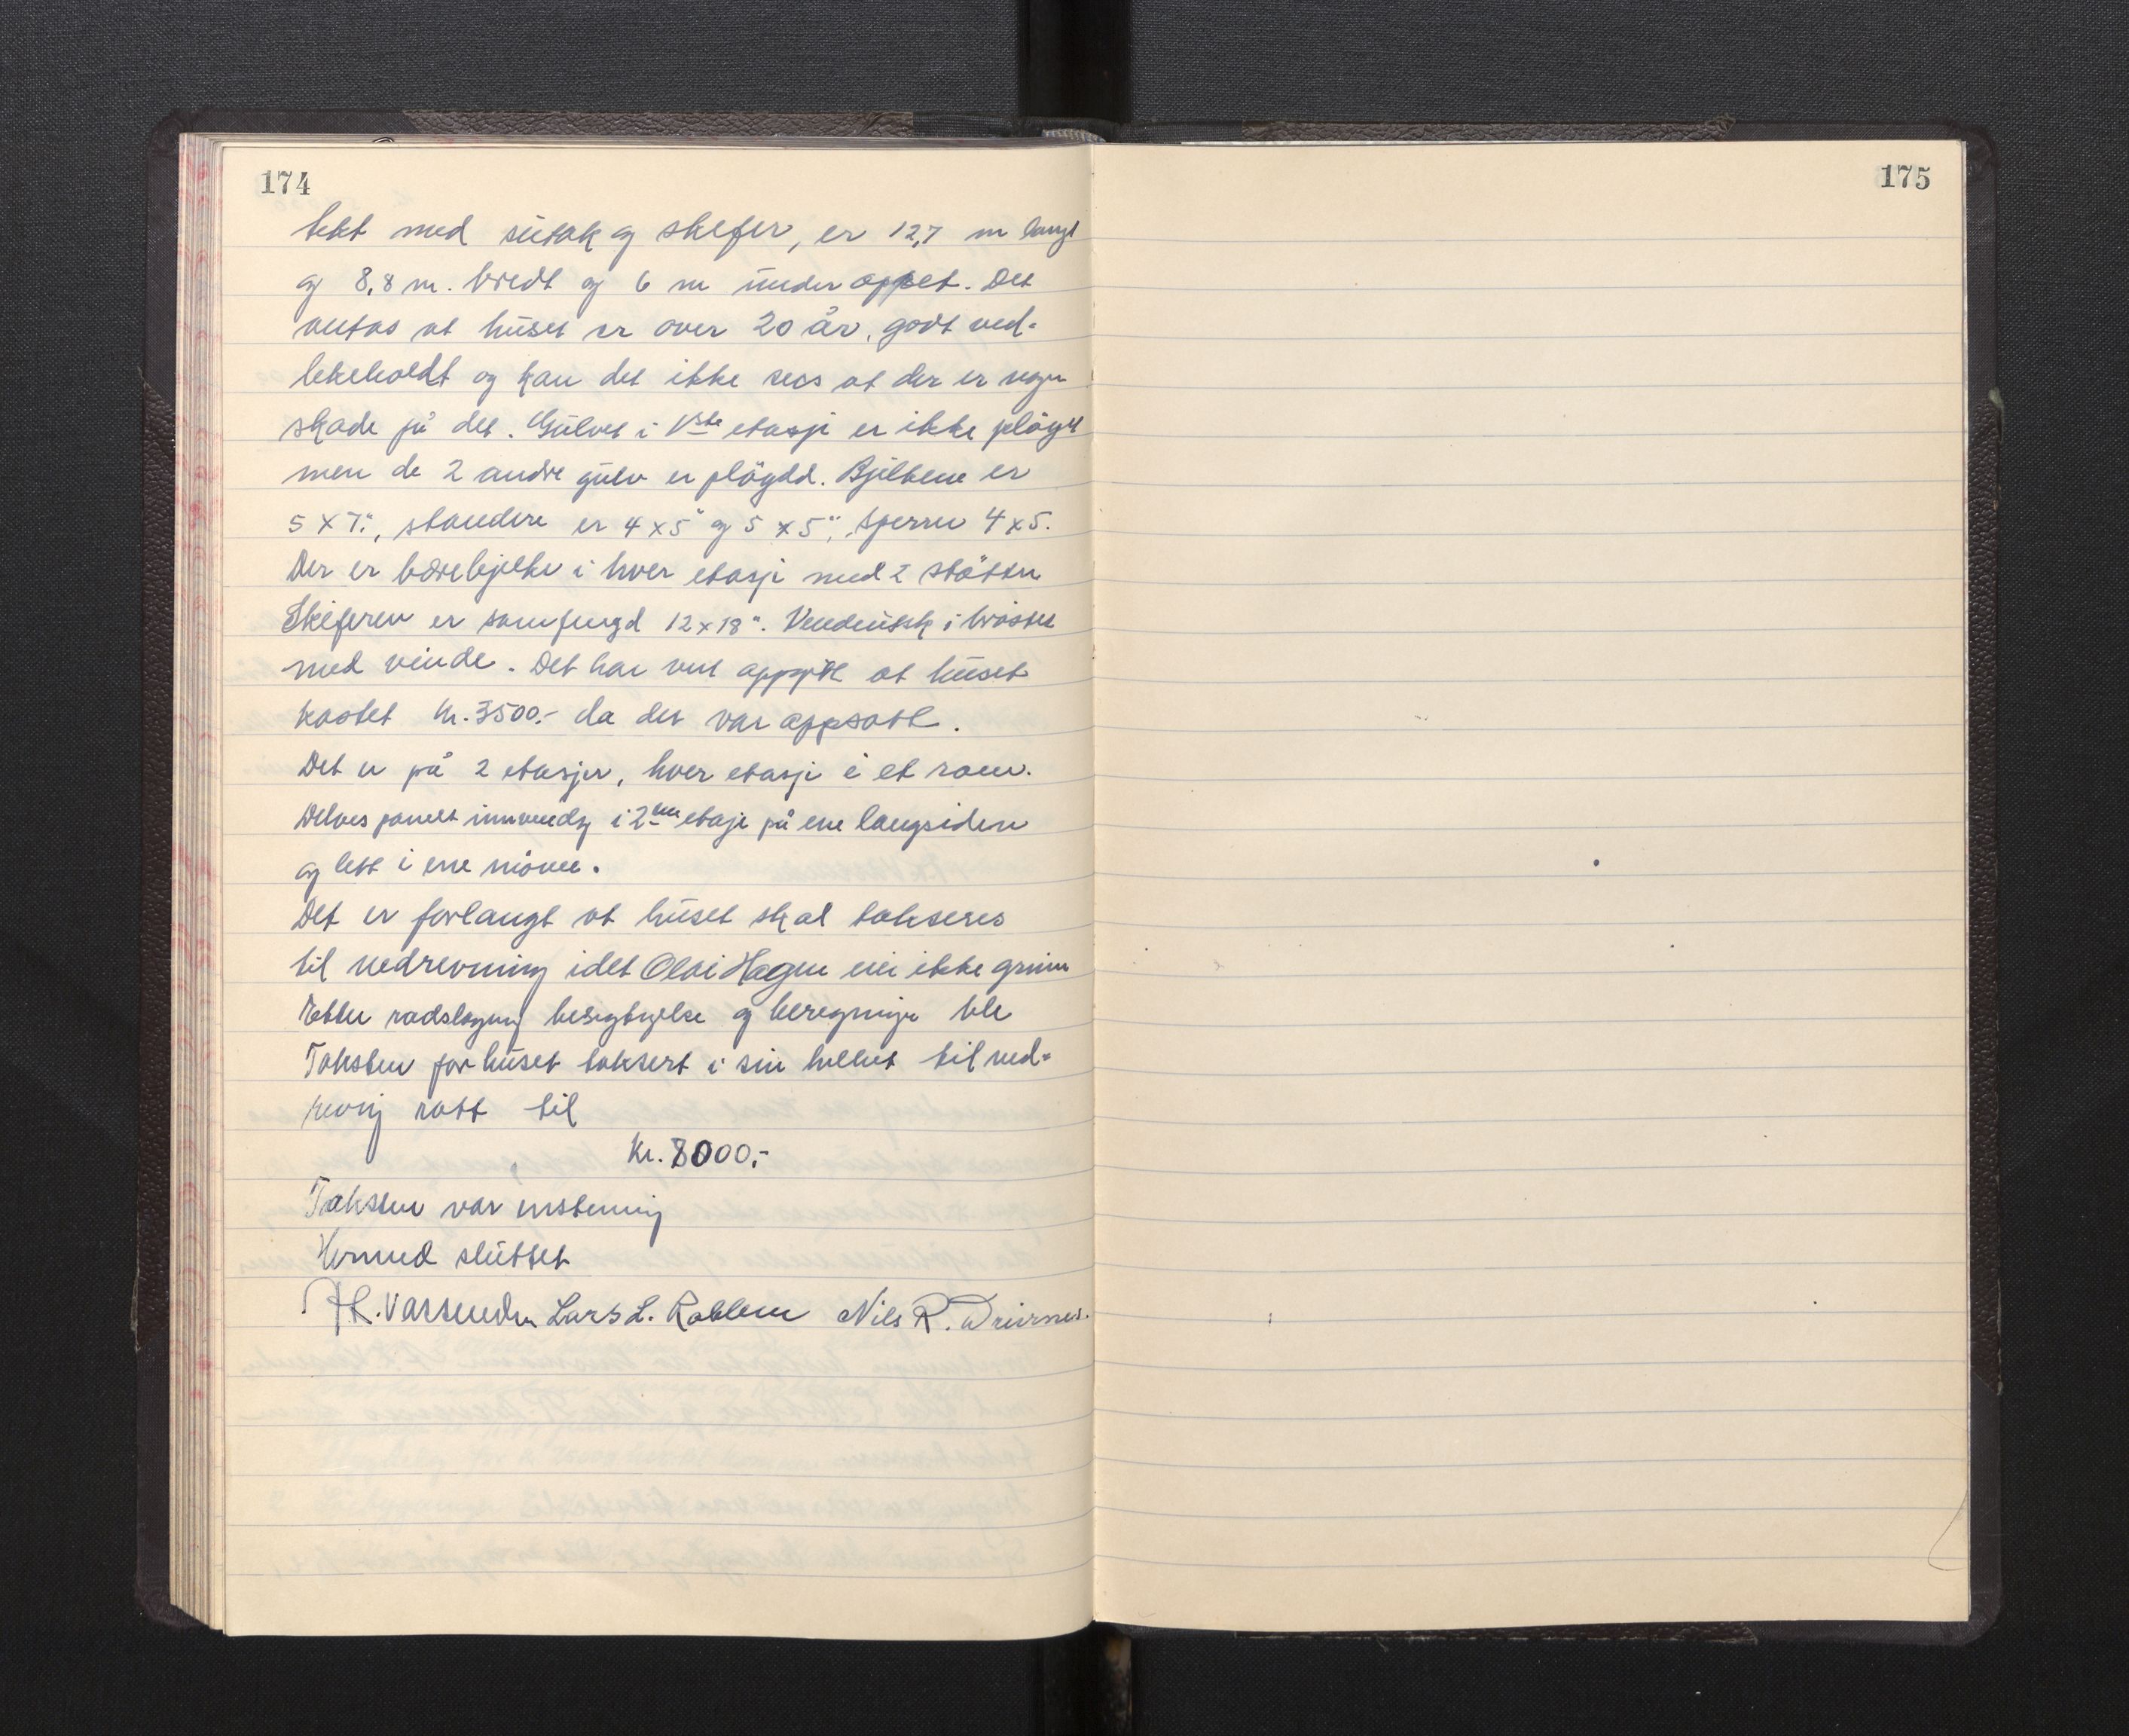 174
175
tekt med sutak og skefer, er 12,7 m langt
og 8,8 m. bredt og 6 m under oppet. Det
antas at huset er over 20 år, godt ved-
lekeholdt og kan det ikke sees at der er nogen
skade på det. Gulvet i 1ste etasje er ikke plögd
men de 2 andre gulv er plögdd. Bjelkene er
5 x 7", standere er 4 x 5" og 5 x 5", sperrer 4 x 5.
Der er bærebjelke i hver etasje med 2 stötter
Skiferen er somfengd 12 x 18". i
med vinde. Det har vert oppgitt at huset
kostet kr. 3500.- da det var oppsatt.
Det er på 2 etasjer, hver etasje i et rom.
Delves panelt innvendig i 2den etasje på ene langsiden
og lett i ene
Det er forlangt at huset skal takseres
til nedrevning idet Olai Hagen eier ikke grunn
Etter radslagning besigtigelse og beregninger ble
Taksten for huset taksert i sin helhet til ned-
revning satt til
Kr. 8000,-
Taksten var enstemmig
Hermed sluttet
Vassenden Lars L. Kobltun Nils R. Drivenes.